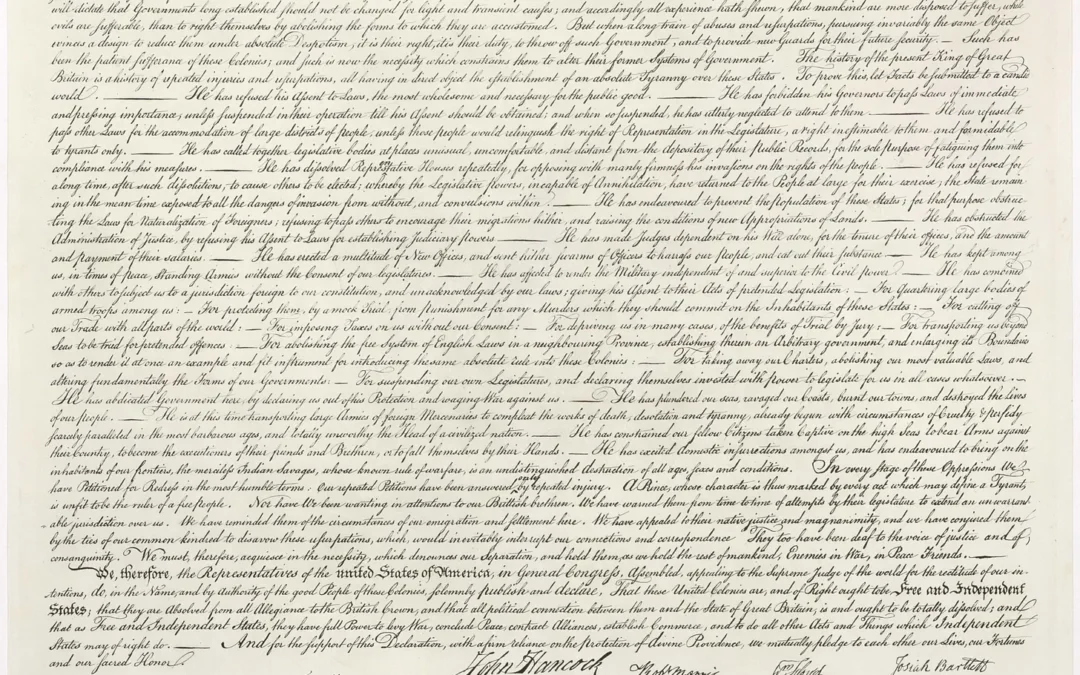 will dictate that Governments long established should not be changed for light and transient causes; and accordingly all experience hath shewn, that mankind are more disposed to suffer, while
evils are sufferable, than to right themselves by abolishing the forms to which they are accustomed. But when a long train of abuses and usurpations, pursuing invariably the same Object
evinces a design to reduce them under absolute Despotism, it is their right, it is their duty, to throw off such Government, and to provide new Guards for their future security. — Such has
been the patient sufferance of these Colonies; and such is now the necessity which constrains them to alter their former Systems of Government. The history of the present King of Great
Britain is a history of repeated injuries and usurpations, all having in direct object the establishment of an absolute Tyranny over these States. To prove this, let Facts be submitted to a candid
world. — He has refused his Assent to Laws, the most wholesome and necessary for the public good. — He has forbidden his Governors to pass Laws of immediate
and pressing importance, unless suspended in their operation till his Assent should be obtained; and when so suspended, he has utterly neglected to attend to them. — He has refused to
pass other Laws for the accommodation of large districts of people, unless those people would relinquish the right of Representation in the Legislature, a right inestimable to them and formidable
to tyrants only. — He has called together legislative bodies at places unusual, uncomfortable, and distant from the depository of their Public Records, for the sole purpose of fatiguing them into
compliance with his measures. — He has dissolved Representative Houses repeatedly, for opposing with manly firmness his invasions on the rights of the people. — He has refused for
a long time, after such dissolutions, to cause others to be elected; whereby the Legislative powers, incapable of Annihilation, have returned to the People at large for their exercise; the State remain
ing in the mean time exposed to all the dangers of invasion from without, and convulsions within. — He has endeavoured to prevent the population of these States; for that purpose obstruc
ting the Laws for Naturalization of Foreigners; refusing to pass others to encourage their migrations hither, and raising the conditions of new Appropriations of Lands. — He has obstructed the
Administration of Justice, by refusing his Assent to Laws for establishing Judiciary powers — He has made Judges dependent on his Will alone, for the tenure of their offices, and the amount
and payment of their salaries. — He has erected a multitude of New Offices, and sent hither swarms of Officers to harrass our people, and eat out their substance — He has kept among
us, in times of peace, Standing Armies without the Consent of our legislatures. — He has affected to render the Military independent of and superior to the Civil power — He has combined
with others to subject us to a jurisdiction foreign to our constitution, and unacknowledged by our laws; giving his Assent to their Acts of pretended Legislation: — For Quartering large bodies of
armed troops among us: — For protecting them, by a mock Trial, from punishment for any Murders which they should commit on the Inhabitants of these States: — For cutting off
our Trade with all parts of the world: — For imposing Taxes on us without our Consent: — For depriving us in many cases, of the benefits of Trial by Jury: — For transporting us beyond
Seas to be tried for pretended offences — For abolishing the free System of English Laws in a neighbouring Province, establishing therein an Arbitrary government, and enlarging its Boundaries
so as to render it at once an example and fit instrument for introducing the same absolute rule into these Colonies: — For taking away our Charters, abolishing our most valuable Laws, and
altering fundamentally the Forms of our Governments: — For suspending our own Legislatures, and declaring themselves invested with power to legislate for us in all cases whatsoever. —
He has abdicated Government here, by declaring us out of his Protection and waging War against us. — He has plundered our seas, ravaged our Coasts, burnt our towns, and destroyed the lives
of our people. — He is at this time transporting large Armies of foreign Mercenaries to compleat the works of death, desolation and tyranny, already begun with circumstances of Cruelty & perfidy
scarcely paralleled in the most barbarous ages, and totally unworthy the Head of a civilized nation. — He has constrained our fellow Citizens taken Captive on the high Seas to bear Arms against
their Country, to become the executioners of their friends and Brethren, or to fall themselves by their Hands. — He has excited domestic insurrections amongst us, and has endeavoured to bring on the
inhabitants of our frontiers, the merciless Indian Savages, whose known rule of warfare, is an undistinguished destruction of all ages, sexes and conditions. In every stage of these Oppressions We
have Petitioned for Redress in the most humble terms: Our repeated Petitions have been answered only by repeated injury. A Prince, whose character is thus marked by every act which may define a Tyrant,
is unfit to be the ruler of a free people. Nor have We been wanting in attentions to our Brittish brethren. We have warned them from time to time of attempts by their legislature to extend an unwarrant
-able jurisdiction over us. We have reminded them of the circumstances of our emigration and settlement here. We have appealed to their native justice and magnanimity, and we have conjured them
by the ties of our common kindred to disavow these usurpations, which, would inevitably interrupt our connections and correspondence They too have been deaf to the voice of justice and of
consanguinity. We must, therefore, acquiesce in the necessity, which denounces our Separation, and hold them, as we hold the rest of mankind, Enemies in War, in Peace Friends. —
We, therefore, the Representatives of the united States of America, in General Congress, Assembled, appealing to the Supreme Judge of the world for the rectitude of our in-
tentions, do, in the Name, and by Authority of the good People of these Colonies, solemnly publish and declare, That these United Colonies are, and of Right ought to be Free and Independent
States; that they are Absolved from all Allegiance to the British Crown, and that all political connection between them and the State of Great Britain, is and ought to be totally dissolved; and
that as Free and Independent States, they have full Power to levy War, conclude Peace, contract Alliances, establish Commerce, and to do all other Acts and Things which Independent
States may of right do. — And for the support of this Declaration, with a firm reliance on the protection of divine Providence, we mutually pledge to each other our Lives, our Fortunes
and our sacred Honor.
John Hancock Robt Morris Josiah Bartlett